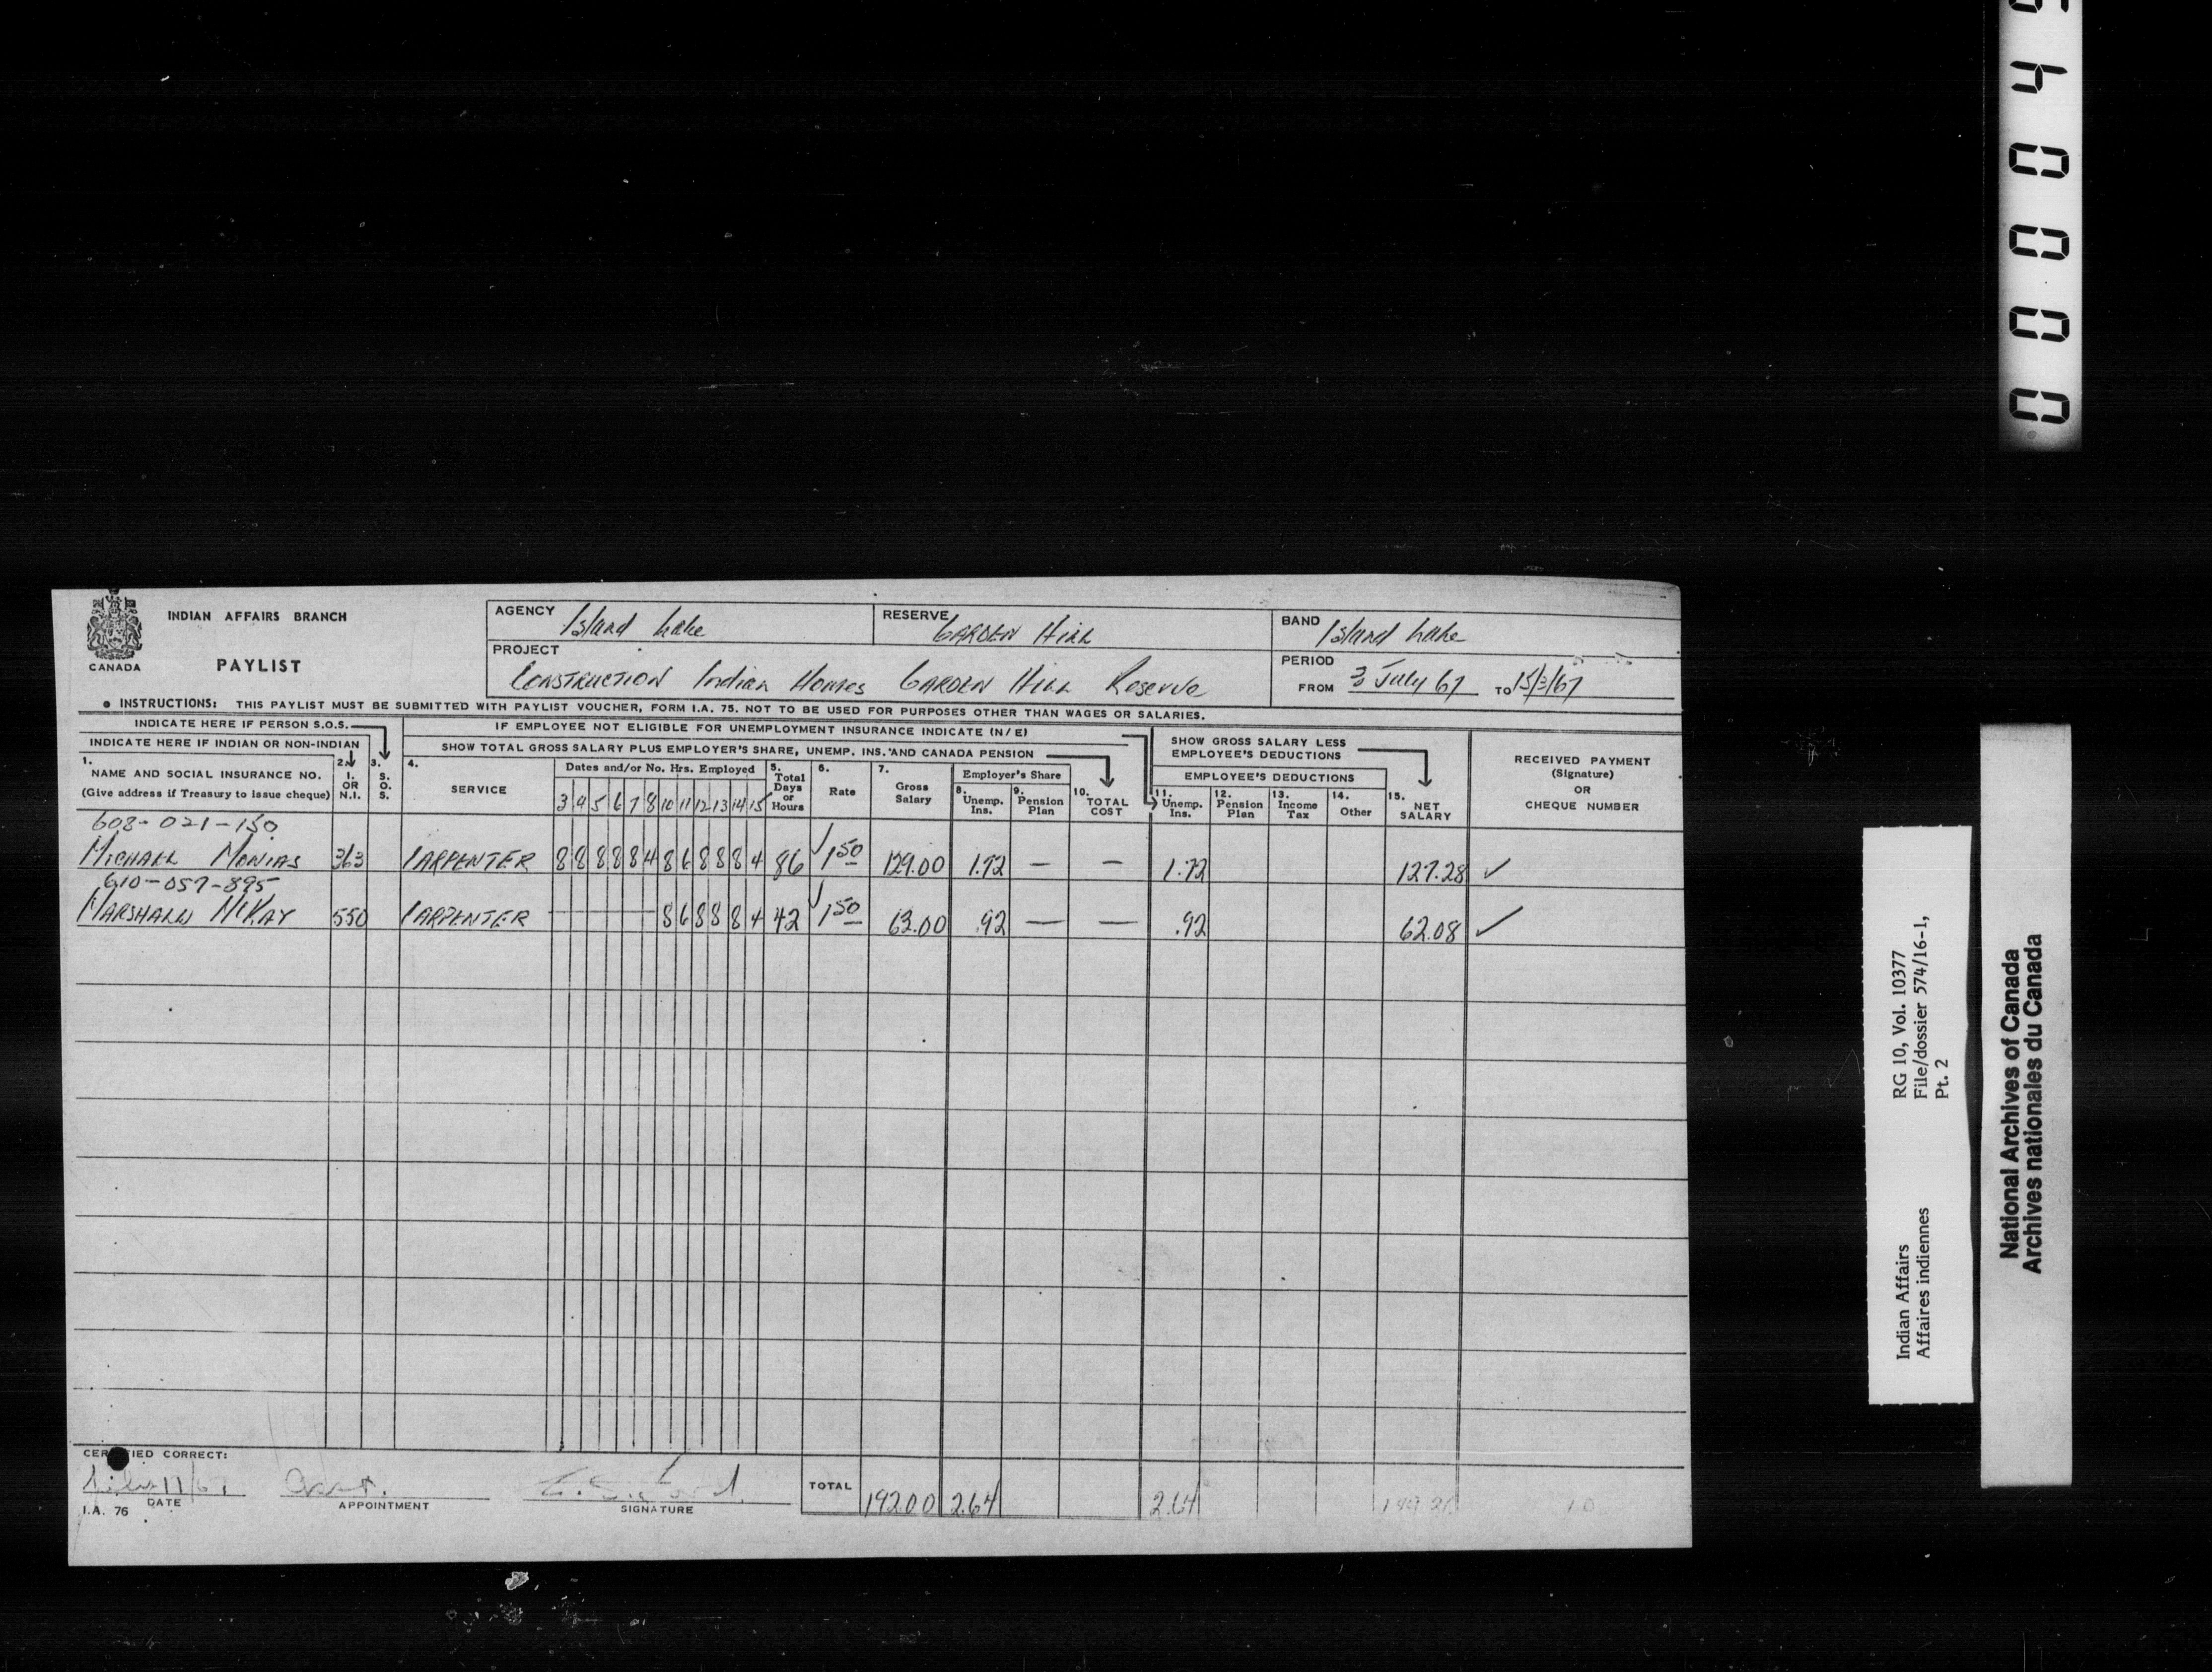 INDIAN AFFAIRS BRANCH
CANADA
PAYLIST
AGENCY Island Lake
RESERVE GARDEN HILL
BAND Island Lake
PROJECT CONSTRUCTION Indian Homes GARDEN HILL Reserve
PERIOD FROM 3 July 67 TO 15/ /67
● INSTRUCTIONS: THIS PAYLIST MUST BE SUBMITTED WITH PAYLIST VOUCHER, FORM I.A. 75. NOT TO BE USED FOR PURPOSES OTHER THAN WAGES OR SALARIES.
INDICATE HERE IF PERSON S.O.S.
INDICATE HERE IF INDIAN OR NON-INDIAN
IF EMPLOYEE NOT ELIGIBLE FOR UNEMPLOYMENT INSURANCE INDICATE (N/E)
SHOW TOTAL GROSS SALARY PLUS EMPLOYER'S SHARE, UNEMP. INS. AND CANADA PENSION
SHOW GROSS SALARY LESS EMPLOYEE'S DEDUCTIONS
1. NAME AND SOCIAL INSURANCE NO. (Give address if Treasury to issue cheque)
2. I. OR N.I.
3. S. O. S.
4. SERVICE
Dates and/or No. Hrs. Employed
3 4 5 6 7 8 10 11 12 13 14 15
5. Total Days or Hours
6. Rate
7. Gross Salary
Employer's Share
8. Unemp. Ins.
9. Pension Plan
10. TOTAL COST
EMPLOYEE'S DEDUCTIONS
11. Unemp. Ins.
12. Pension Plan
13. Income Tax
14. Other
15. NET SALARY
RECEIVED PAYMENT (Signature) OR CHEQUE NUMBER
608-021-150
MICHAEL MONIAS 363 CARPENTER 8 8 8 8 8 4 8 6 8 8 8 4 86 ✓ 1 50 129.00 1.72 — — 1.72 127.28 ✓
610-057-895
MARSHALL McKAY 550 CARPENTER 8 6 8 8 8 4 42 ✓ 1 50 63.00 .92 — — .92 62.08 ✓
CERTIFIED CORRECT:
DATE
APPOINTMENT
SIGNATURE
TOTAL 192.00 2.64 2.64
I.A. 76
0 0 0 0 4
RG 10, Vol. 10377
File/dossier 574/16-1,
Pt. 2
Indian Affairs
Affaires indiennes
National Archives of Canada
Archives nationales du Canada